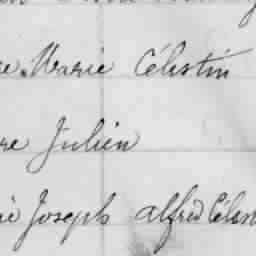 Marie Célestin
re Julien
Joseph Alfred Céles